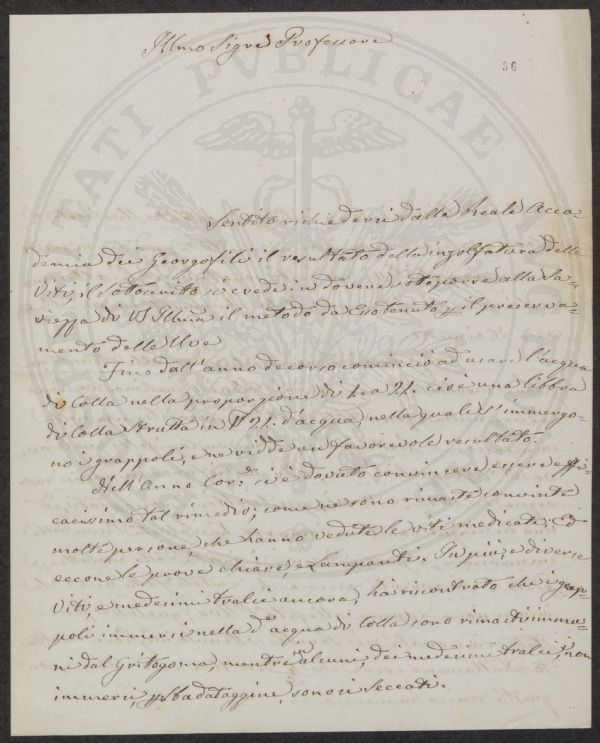 Illmo Sigre Professore
36
Sentito richiedersi dalla Reale Acca-
demia dei Georgofili il resultato della inzolfatura delle
Viti, il sotoscrito si crede in dovere sotoporre alla Sa-
viezza di VS Illma il metodo da Esso tenuto p il preserva-
mento delle Uve
Fino dall'anno decorso cominciò ad usare l'acqua
di Colla nella proporzione di 1. a 21. cioè una libbra
di Colla strutta in 21. d'acqua, nella quale s'immergo-
no i grappoli, e ne vidde un favorevole resultato.
Nell'Anno Core si è dovuto convincere essere effi-
cacissimo tal rimedio; come ne sono rimaste convinte
molte persone che hanno vedute le viti medicate; Ed
eccone le prove chiare, e Lampanti. In più, e diverse
Viti, e medesimi tralci ancora, ha riscontrato che i grap-
poli immersi nella da acqua di Colla sono rimasti immu-
ni dal Gritogoma, mentre alcuni, dei medesimi tralci, non
immersi, p sbadataggine, sono si Seccati.
PVBLICAE